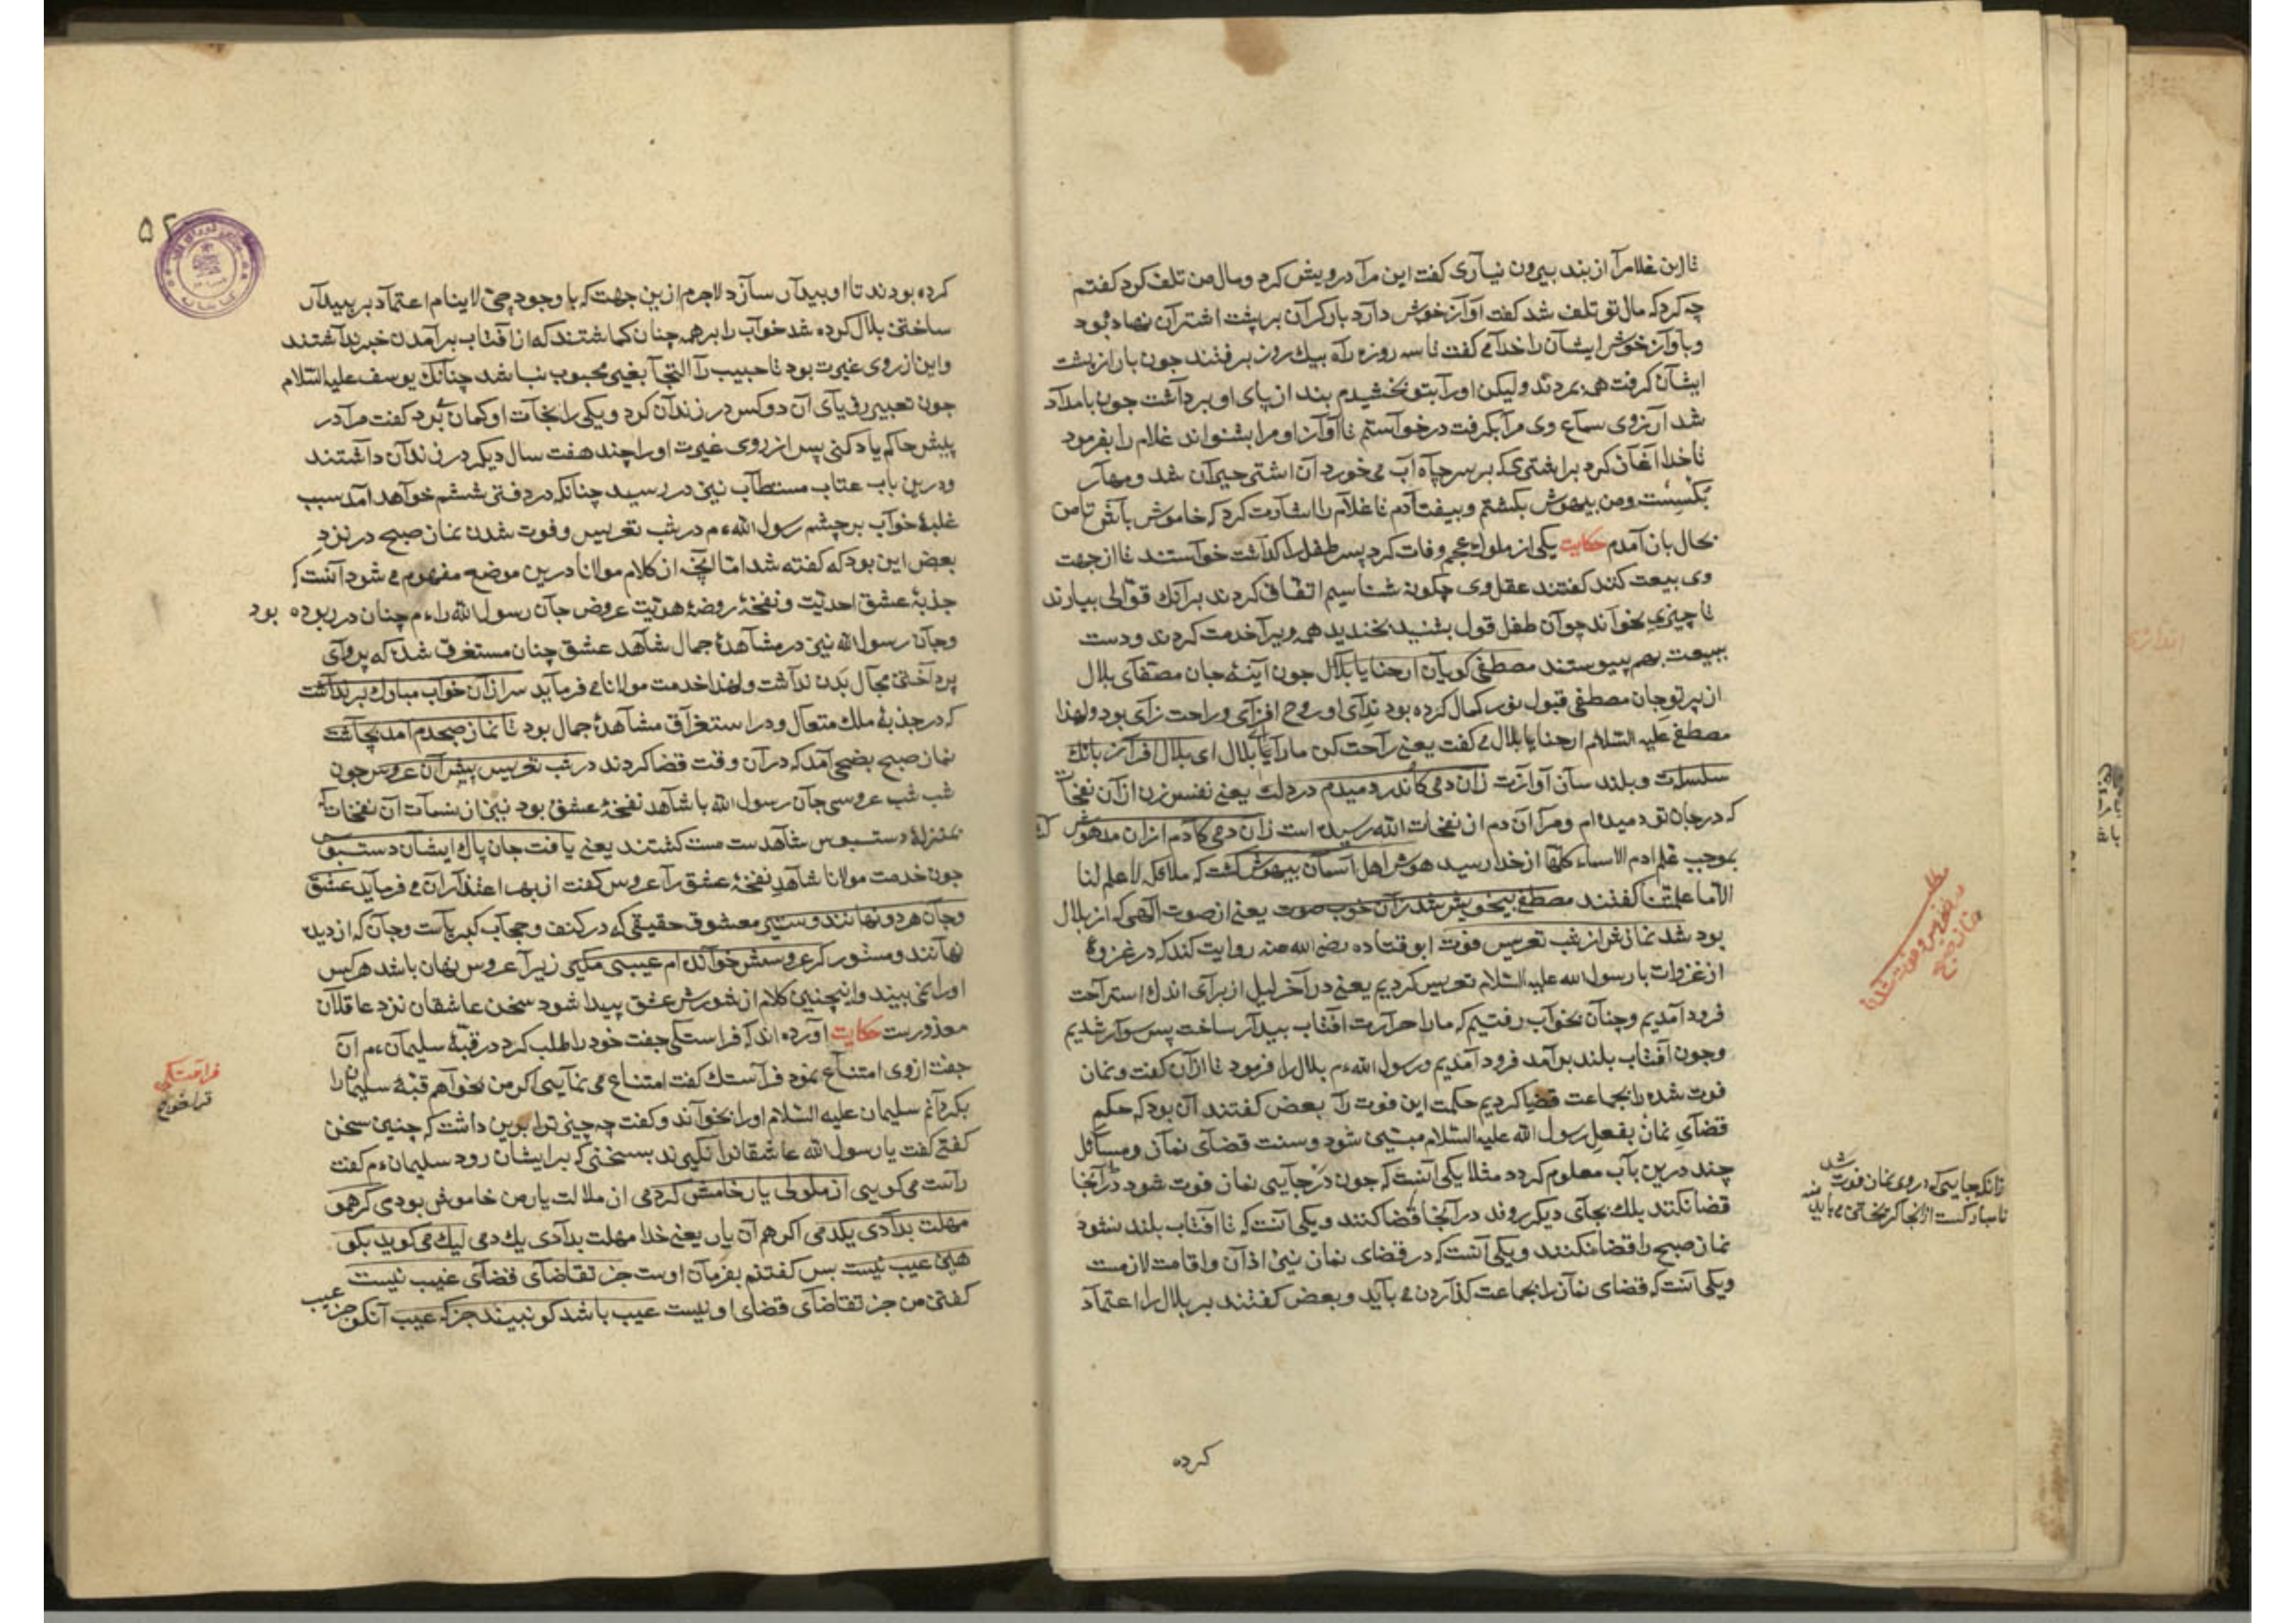 تا این غلام را از بند بیرون نیاری گفت این مرا درویش کرد و مال من تلف کرد گفتم
چه کرد که مال تو تلف شد گفت آواز خوش دارد بار گران بر پشت اشتران نهاده بود
و بآواز خوش ایشان را خدا می گفت تا سه روزه راه بیک روز برفتند جون بار از پشت
ایشان گرفت همه بمردند ولیکن او را بتو بخشیدم بند از پای او برداشت جون بامداد
شد آرزوی سماع وی مرا بگرفت درخواستم تا آواز او مرا بشنواند غلام را بفرمود
تا خدا آغاز کرد بر اشتری که بر سر چاه آب می خورد آن اشتر حیران شد و مهار
بگسست و من بیهوش بگشتم و بیفتادم تا غلام را اشارت کرد که خاموش باش تا من
بحال باز آمدم حکایت یکی از ملوک عجم وفات کرد پسر طفل را گذاشت خواستند تا از جهت
وی بیعت کنند گفتند عقل وی چگونه شناسیم اتفاق کردند بر آنک قوالی بیارند
تا چیزی بخواند چو آن طفل قول بشنید بخندید همه ویرا خدمت کردند و دست
ببیعت بهم پیوستند مصطفی گویان ارحنا یا بلال جون آینهٔ جان مصفای بلال
از پرتو جان مصطفی قبول نور کمال کرده بود ندای او روح افزای و راحت زای بود و لهذا
مصطفی علیه السلام ارحنا یا بلال می گفت یعنی راحت کن ما را یا بلال ای بلال افراز بانگ
سلسلت و بلند ساز آوازت زان دمی کاندر دمیدم در دلت یعنی نفس زن از آن نفخات
که در جان تو دمیده ام و مرا آن دم از نفخات الله رسیده است زان دمی کادم ازان مدهوش گشت
بموجب علم ادم الاسماء کلها از خدا رسید هوش اهل آسمان بیهوش گشت که ملائکه لا علم لنا
الا ما علمتنا گفتند مصطفی بیخویش شد زان خوب صوت یعنی از صوت الهی که از بلال
بود شد نمازش از شب تعریس فوت ابو قتاده رضی الله عنه روایت کند که در غزوهٔ
از غزوات با رسول الله علیه السلام تعریس کردیم یعنی در آخر لیل از برای اندک استراحت
فرود آمدیم و چنان بخواب رفتیم که ما را حرارت افتاب بیدار ساخت پس سوار شدیم
و جون آفتاب بلند بر آمد فرود آمدیم و رسول الله ءم بلال را فرمود تا اذان گفت و نماز
فوت شده را بجماعت قضا کردیم حکمت این فوت را بعض گفتند آن بود که حکم
قضای نماز بفعل رسول الله علیه السلام مبین شود و سنت قضای نماز و مسائل
چند درین باب معلوم گردد مثلا یکی آنست که جون در جایی نماز فوت شود در آنجا
قضا نکنند بلک بجای دیگر روند در آنجا قضا کنند و یکی آنست که تا آفتاب بلند نشود
نماز صبح را قضا نکنند و یکی آنست که در قضای نماز نیز اذان و اقامت لازمست
و یکی آنست که قضای نماز را بجماعت گذاردن می باید و بعض گفتند بر بلال را اعتماد
در تعریس و فوت شدن
نماز صبح
زانکه جایی که در وی نماز فوت شد
نامبارکست از آنجا گریختن می باید
کرده
۵۲
کرده بودند تا او بیدار سازد لاجرم ازین جهت که با وجود حی لا ینام اعتماد بر بیدار
ساختن بلال کرده شد خواب را بر همه چنان گماشتند که از آفتاب بر آمدن خبر نداشتند
و این از روی غیرت بود تا حبیب را التجا بغیر محبوب نباشد چنانک یوسف علیه السلام
جون تعبیر رؤیای آن دو کس در زندان کرد و یکی را نجات او گمان برد گفت مرا در
پیش حاکم یاد کنی پس از روی غیرت او را چند هفت سال دیگر در زندان داشتند
و درین باب عتاب مستطاب نیز در رسید چنانکه در دفتر ششم خواهد آمد سبب
غلبهٔ خواب بر چشم رسول الله ءم در شب تعریس و فوت شدن نماز صبح در نزد
بعض این بود که گفته شد اما آنچ از کلام مولانا درین موضع مفهوم می شود آنست که
جذبهٔ عشق احدیت و نفخهٔ روضهٔ هویت عروض جان رسول الله را ءم چنان در ربوده بود
و جان رسول الله نیز در مشاهدهٔ جمال شاهد عشق چنان مستغرق شده که پروای
پرداختن بحال بدن نداشت و لهذا خدمت مولانا می فرماید سر ازان خواب مبارک بر نداشت
که در جذبهٔ ملک متعال و در استغراق مشاهدهٔ جمال بود تا نماز صبحدم آمد بچاشت
نماز صبح بضحی آمد که در آن وقت قضا کردند در شب تعریس پیش آن عروس جون
شب شب عروسی جان رسول الله با شاهد نفخهٔ عشق بود نیز از نسمات آن نفخات که
بمنزلهٔ دستبوس شاهدست مست گشتند یعنی یافت جان پاک ایشان دستبوس
جون خدمت مولانا شاهد نفخهٔ عشق را عروس گفت از بهر اعتذار آن می فرماید عشق
و جان هر دو نهانند و ستیر معشوق حقیقی که در کنف و حجاب کبریاست و جان که از دیده
نهانند و مستور گر عروسش خوانده ام عیبی مگیر زیرا عروس نهان باشد هر کس
او را نمی بیند و اینچنین کلام از شورش عشق پیدا شود سخن عاشقان نزد عاقلان
معذورست حکایت آورده اند که فراستکی جفت خود را طلب کرد در قبهٔ سلیمان ءم آن
جفت از وی امتناع نمود فراستک گفت امتناع می نمایی اگر من بخواهم قبهٔ سلیمان را
بگردانم سلیمان علیه السلام او را بخواند و گفت چه چیز ترا برین داشت که چنین سخن
گفتی گفت یا رسول الله عاشقانرا نگیرند بسخنی که بر ایشان رود سلیمان ءم گفت
راست می گویی از ملولی یار خامش کردمی از ملالت یار من خاموش بودی گر همو
مهلت بدادی یکدمی اگر هم آن یار یعنی خدا مهلت بدادی یک دمی لیک می گوید بگو
هین عیب نیست بس گفتنم بفرمان اوست جز تقاضای قضای غیب نیست
گفتن من جز تقاضای قضای او نیست عیب باشد کو نبیند جز که عیب آنکو جز عیب
فراستک